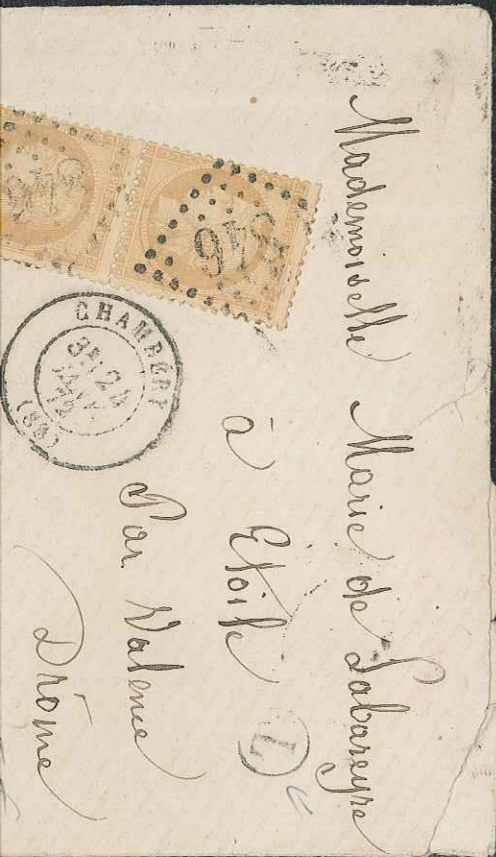 Mademoiselle Marie de Labareyre
à Etoile
Par Valence
Drôme
L
CHAMBERY
3E 24
JANV.
72
(88)